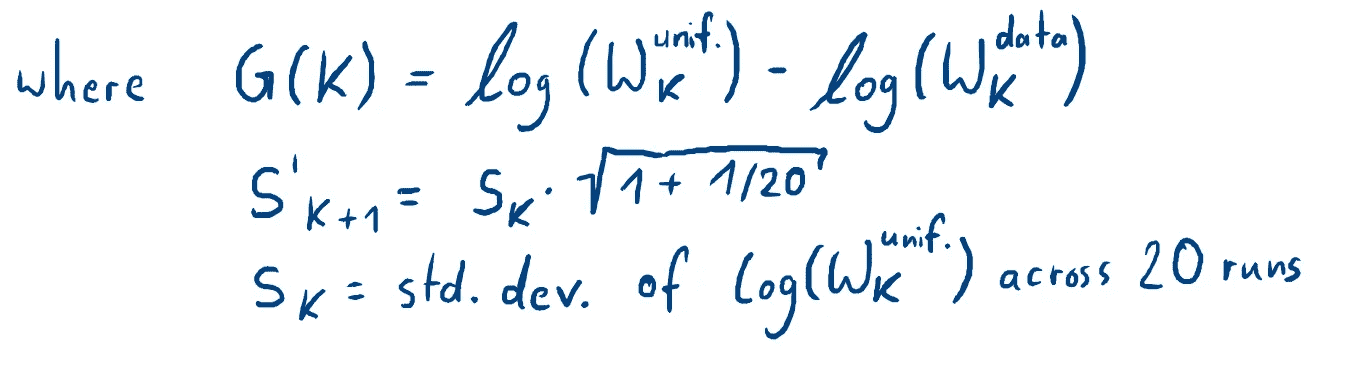 where G(K) = log(W_K^unif.) - log(W_K^data)
S'_K+1 = S_K · √(1 + 1/20)
S_K = std. dev. of log(W_K^unif.) across 20 runs